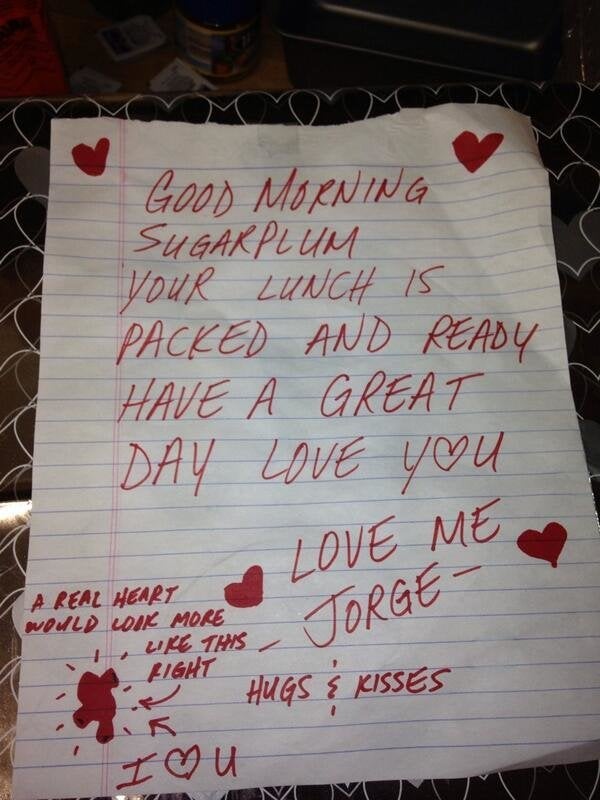 GOOD MORNING
SUGARPLUM
YOUR LUNCH IS
PACKED AND READY
HAVE A GREAT
DAY LOVE Y♡U
LOVE ME
JORGE-
A REAL HEART
WOULD LOOK MORE
LIKE THIS -
RIGHT
HUGS & KISSES
I ♡ U